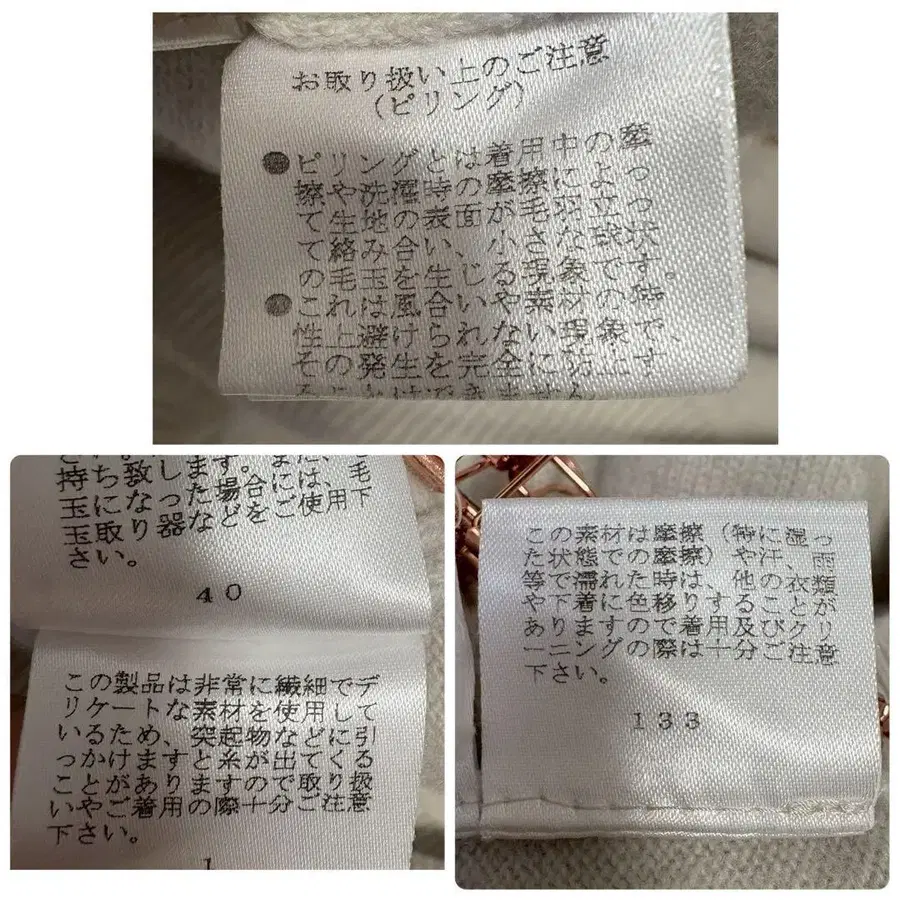 お取り扱い上のご注意
（ピリング）
●ピリングとは着用中の摩
擦や洗濯時の摩擦によっ
て生地の表面が毛羽立っ
て絡み合い、小さな球状
の毛玉を生じる現象です。
●これは風合いや素材の特
性上避けられない現象で、
その発生を完全に防止す
ることはできません
持ち致します。また、毛
玉になった場合には、
玉取り器などをご使用下
さい。
40
この製品は非常に繊細でデ
リケートな素材を使用して
いるため、突起物などに引
っかけますと糸が出てくる
ことがありますので取り扱
いやご着用の際十分ご注意
下さい。
1
この素材は摩擦（特に湿っ
た状態での摩擦）や汗、雨
等で濡れた時は、他の衣類
や下着に色移りすることが
ありますので着用及びクリ
ーニングの際は十分ご注意
下さい。
133